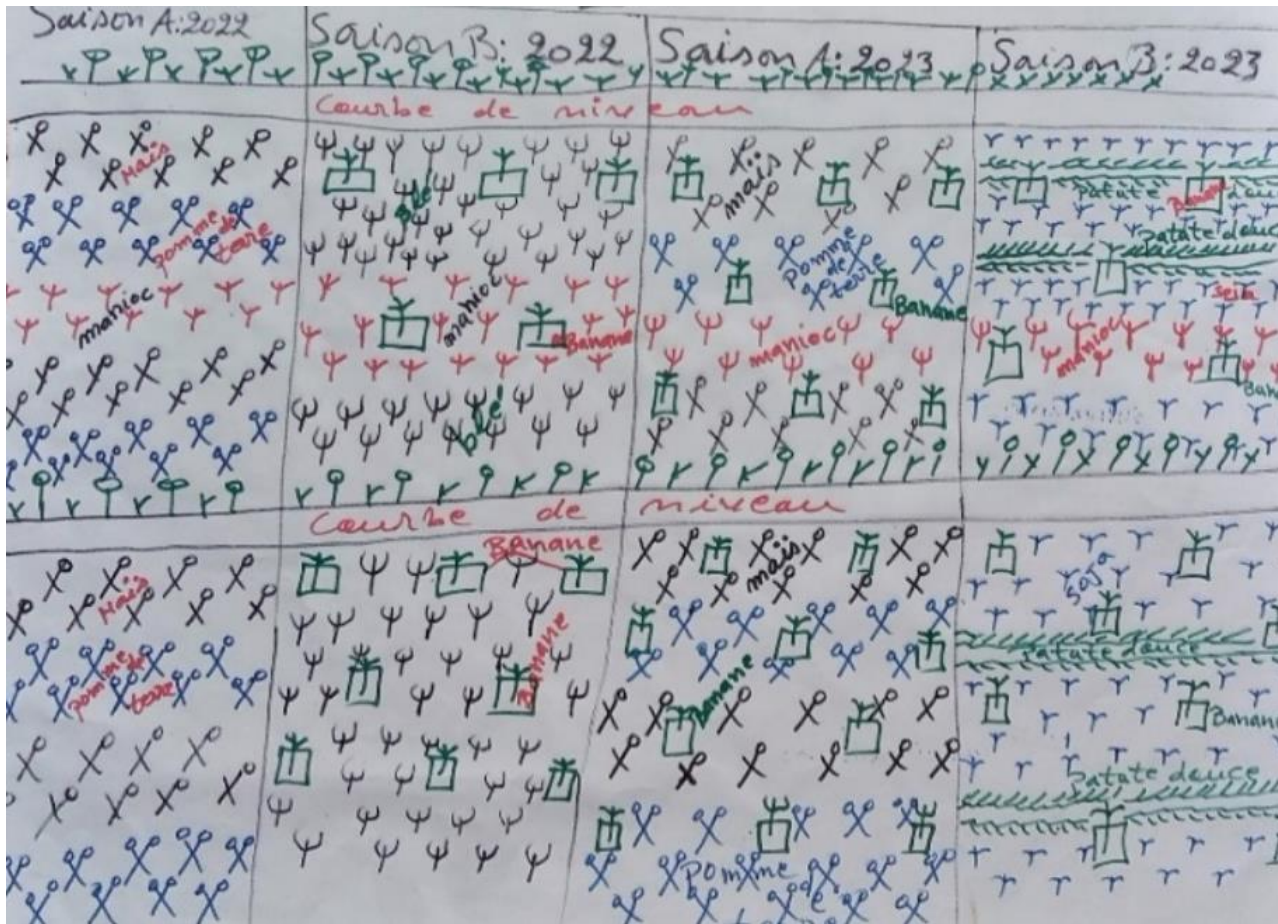 Saison A: 2022
Saison B: 2022
Saison A: 2023
Saison B: 2023
Courbe de niveau
Maïs
pomme
de
terre
manioc
Blé
manioc
Banane
blé
maïs
pomme
de
terre
Banane
manioc
patate douce
Banane
Patate douce
manioc
Courbe de niveau
Maïs
pomme
de
terre
Banane
Banane
maïs
Banane
pomme
de
Soja
Patate douce
Banane
Patate douce